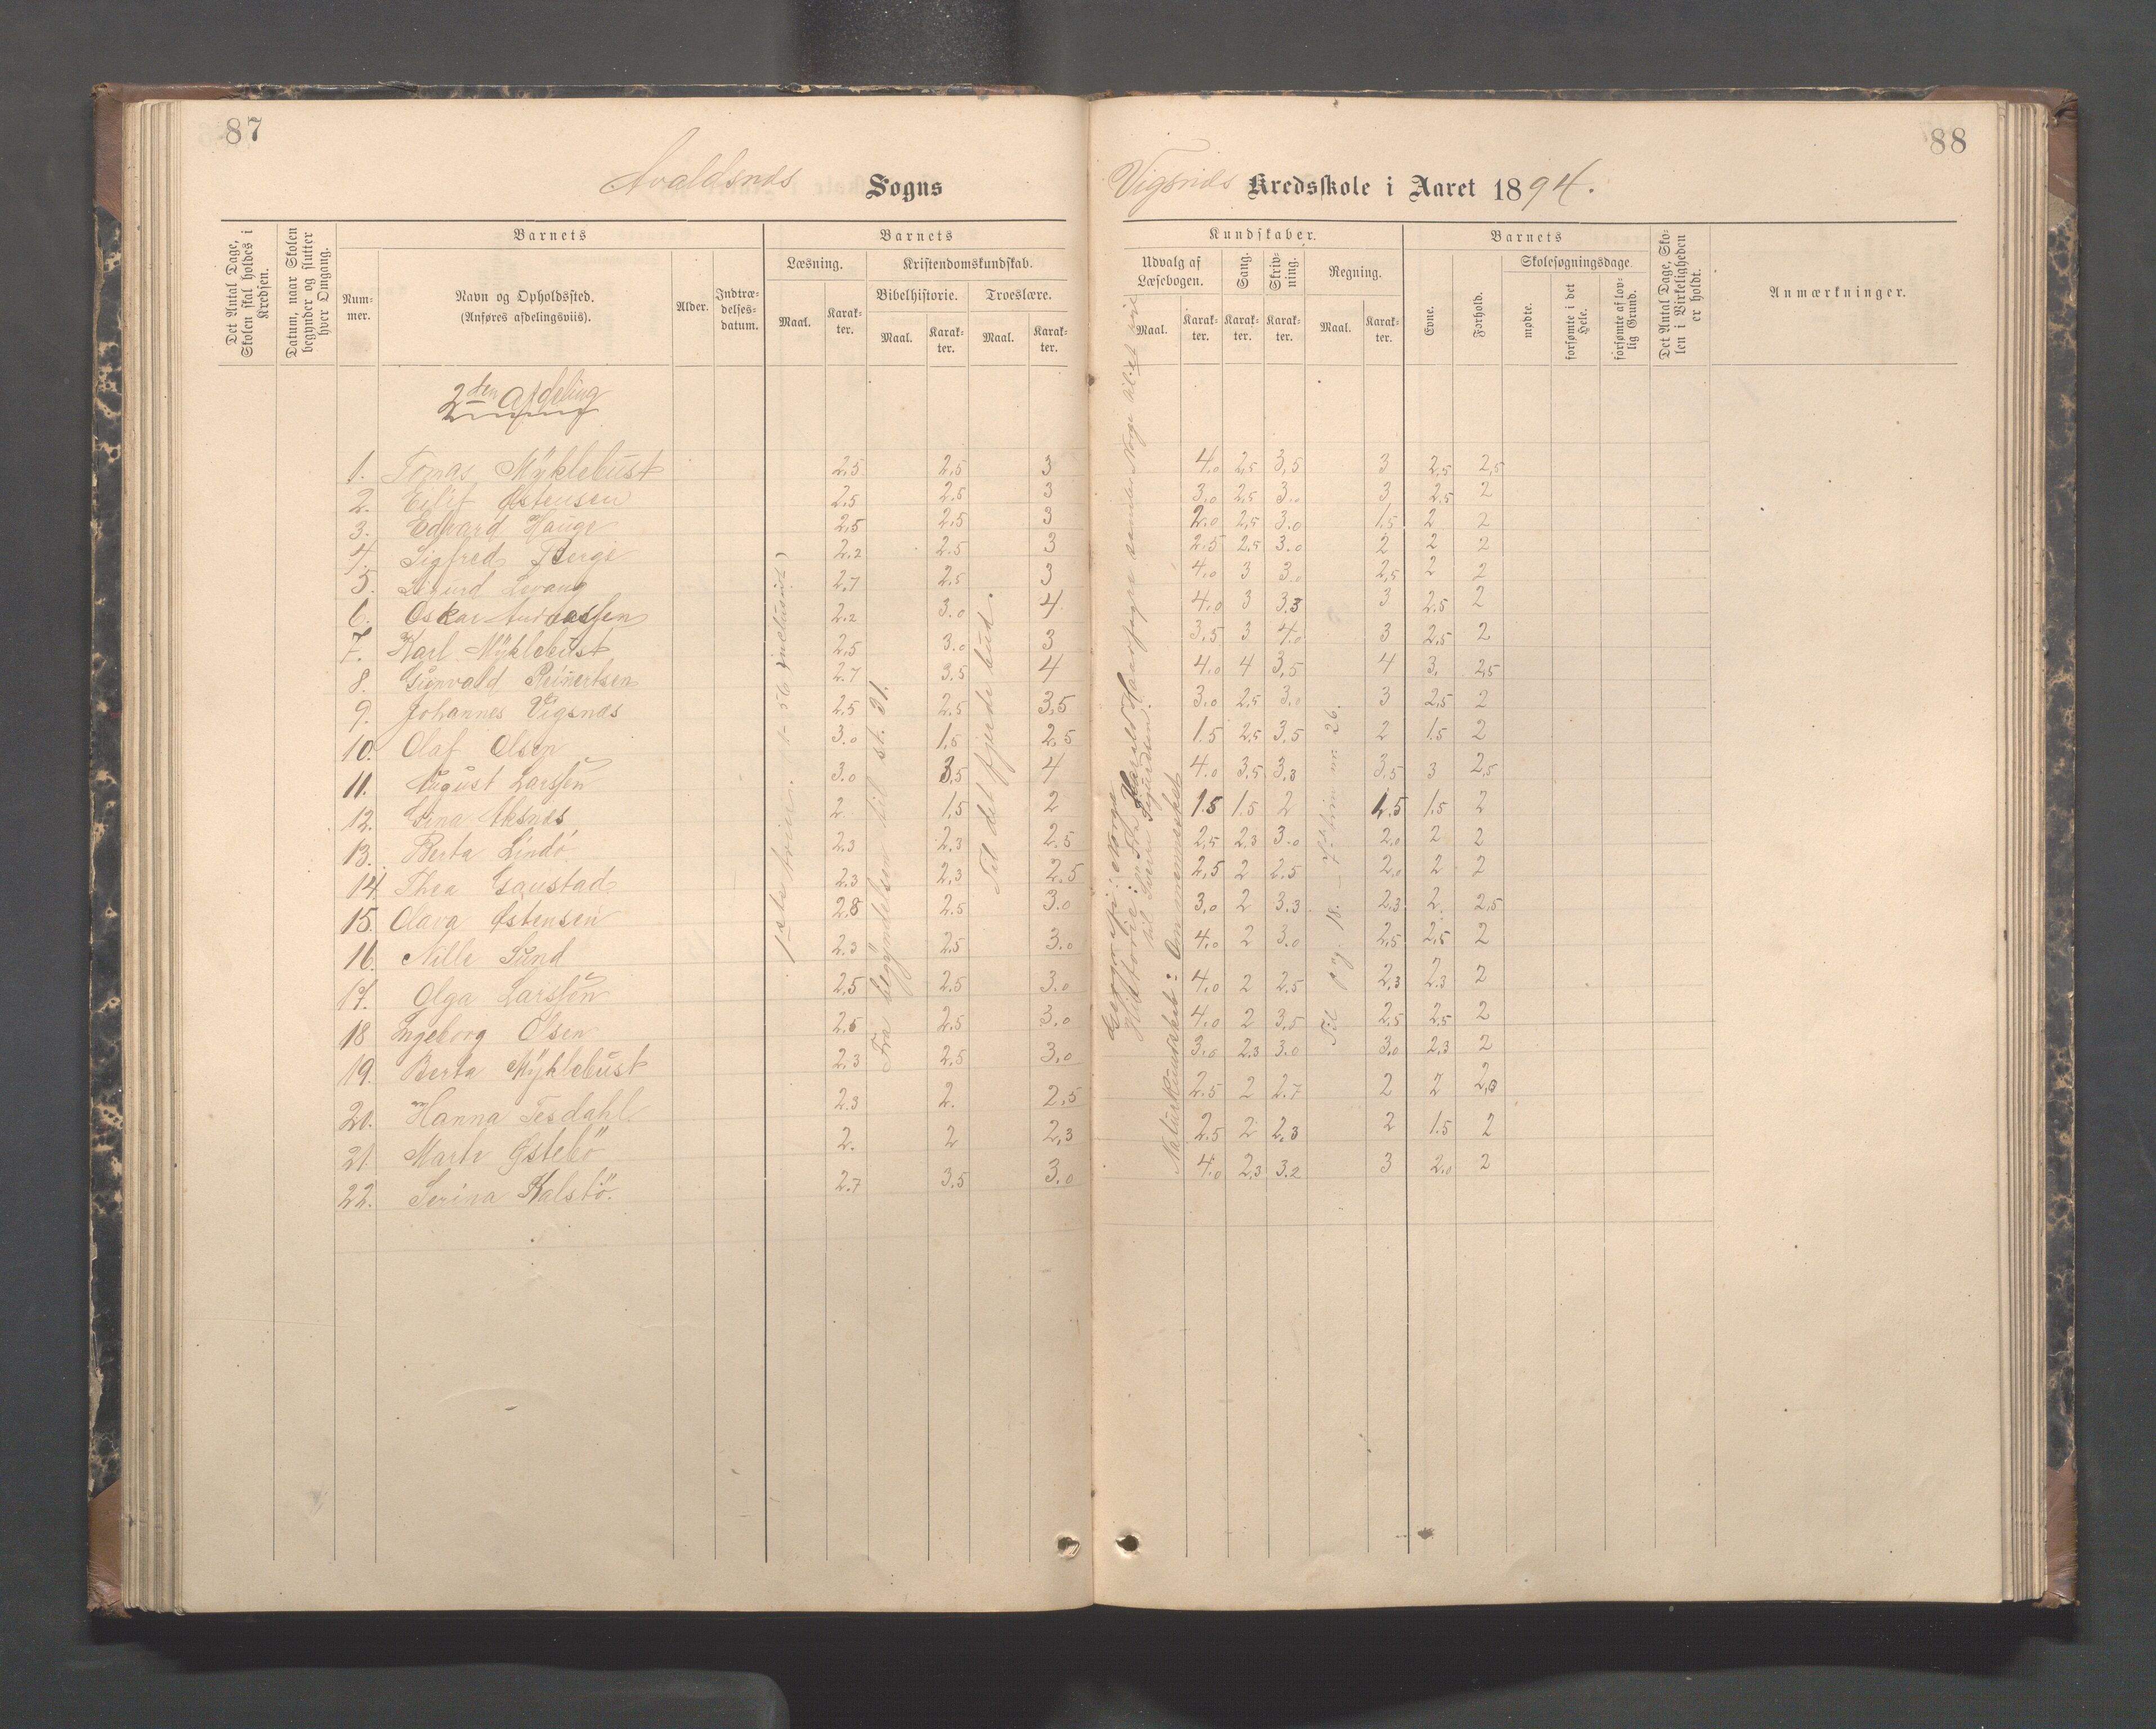 87
88
Avaldsnæs Sogns
Vigsnæs Kredsskole i Aaret 1894.
Det Antal Dage, Skolen skal holdes i Kredsen.
Datum, naar Skolen begynder og slutter hver Omgang.
Barnets
Nummer.
Navn og Opholdssted.
(Anføres afdelingsviis).
Alder.
Indtrædelsesdatum.
Barnets
Læsning.
Maal.
Karakter.
Kristendomskundskab.
Bibelhistorie.
Maal.
Karakter.
Troeslære.
Maal.
Karakter.
Kundskaber.
Udvalg af Læsebogen.
Maal.
Karakter.
Sang.
Karakter.
Skrivning.
Karakter.
Regning.
Maal.
Karakter.
Barnets
Evne.
Forhold.
Skolesøgningsdage.
mødte.
forsømte i det Hele.
forsømte af lovlig Grund.
Det Antal Dage, Skolen i Virkeligheden er holdt.
Anmærkninger.
2den Afdeling
1. Tomas Myklebust 2,5 2,5 3 4.0 2,5 3,5 3 2,5 2,5
2. Eilif Østensen 2,5 2,5 3 3.0 2,5 3.0 3 2.5 2
3. Edvard Hauge 2,5 2,5 3 2.0 2,5 3.0 1,5 2 2
4. Sigfred Berge 2,2 2.5 3 2.5 2,5 3.0 2 2 2
5. Sigurd Levang 2,7 2,5 3 4.0 3 3.0 2,5 2 2
6. Oskar Andreassen 2,2 3.0 4 4.0 3 3.3 3 2.5 2
7. Karl Myklebust 2,5 3.0 3 3.5 3 4.0 3 2,5 2
8. Gunvald Reinertsen 2.7 3.5 4 4.0 4 3,5 4 3. 2,5
9. Johannes Vigsnæs 2,5 2.5 3,5 3.0 2,5 3.0 3 2,5 2
10. Olaf Olsen 3.0 1,5 2,5 1.5 2,5 3.5 2 1.5 2
11. August Larssen 3.0 3,5 4 4.0 3,5 3,3 3,5 3 2,5
12. Gina Aksnæs 2 1,5 2 1.5 1.5 2 1.5 1.5 2
13. Berta Lindö 2.3 2.3 2.5 2,5 2.3 3.0 2.0 2 2
14. Thea Gaustad 2.3 2,3 2.5 2,5 2 2.5 2.0 2 2
15. Olava Østensen 2,8 2.5 3.0 3,0 2 3.3 2,3 2. 2,5
16. Nille Sund 2.3 2,5 3.0 4.0 2 3.0 2,5 2,5 2
17. Olga Larssen 2,5 2.5 3.0 4.0 2 2.5 2,3 2.3 2
18 Ingeborg Olsen 2.5 2.5 3.0 4.0 2 3.5 2.5 2.5 2
19. Berta Myklebust 2.3 2.5 3.0 3.5 2.3 3.0 3.0 2,3 2
20. Hanna Tesdahl 2.3 2. 2,5 2.5 2 2.7 2 2 2,0
21 Marte Østebö 2. 2 2,3 2.5 2 2,3 2 1.5 2
22. Serina Kalstö. 2.7 3,5 3.0 4.0 2,3 3.2 3 2.0 2
Fra begyndelsen til st. 31.
Til det fjerde bud.
Geografi: Norge
Historie: Fra Harald Haarfagre samler Norge til et rige
til Sverre Sigurdsen.
Naturkundskab: Om mennesket